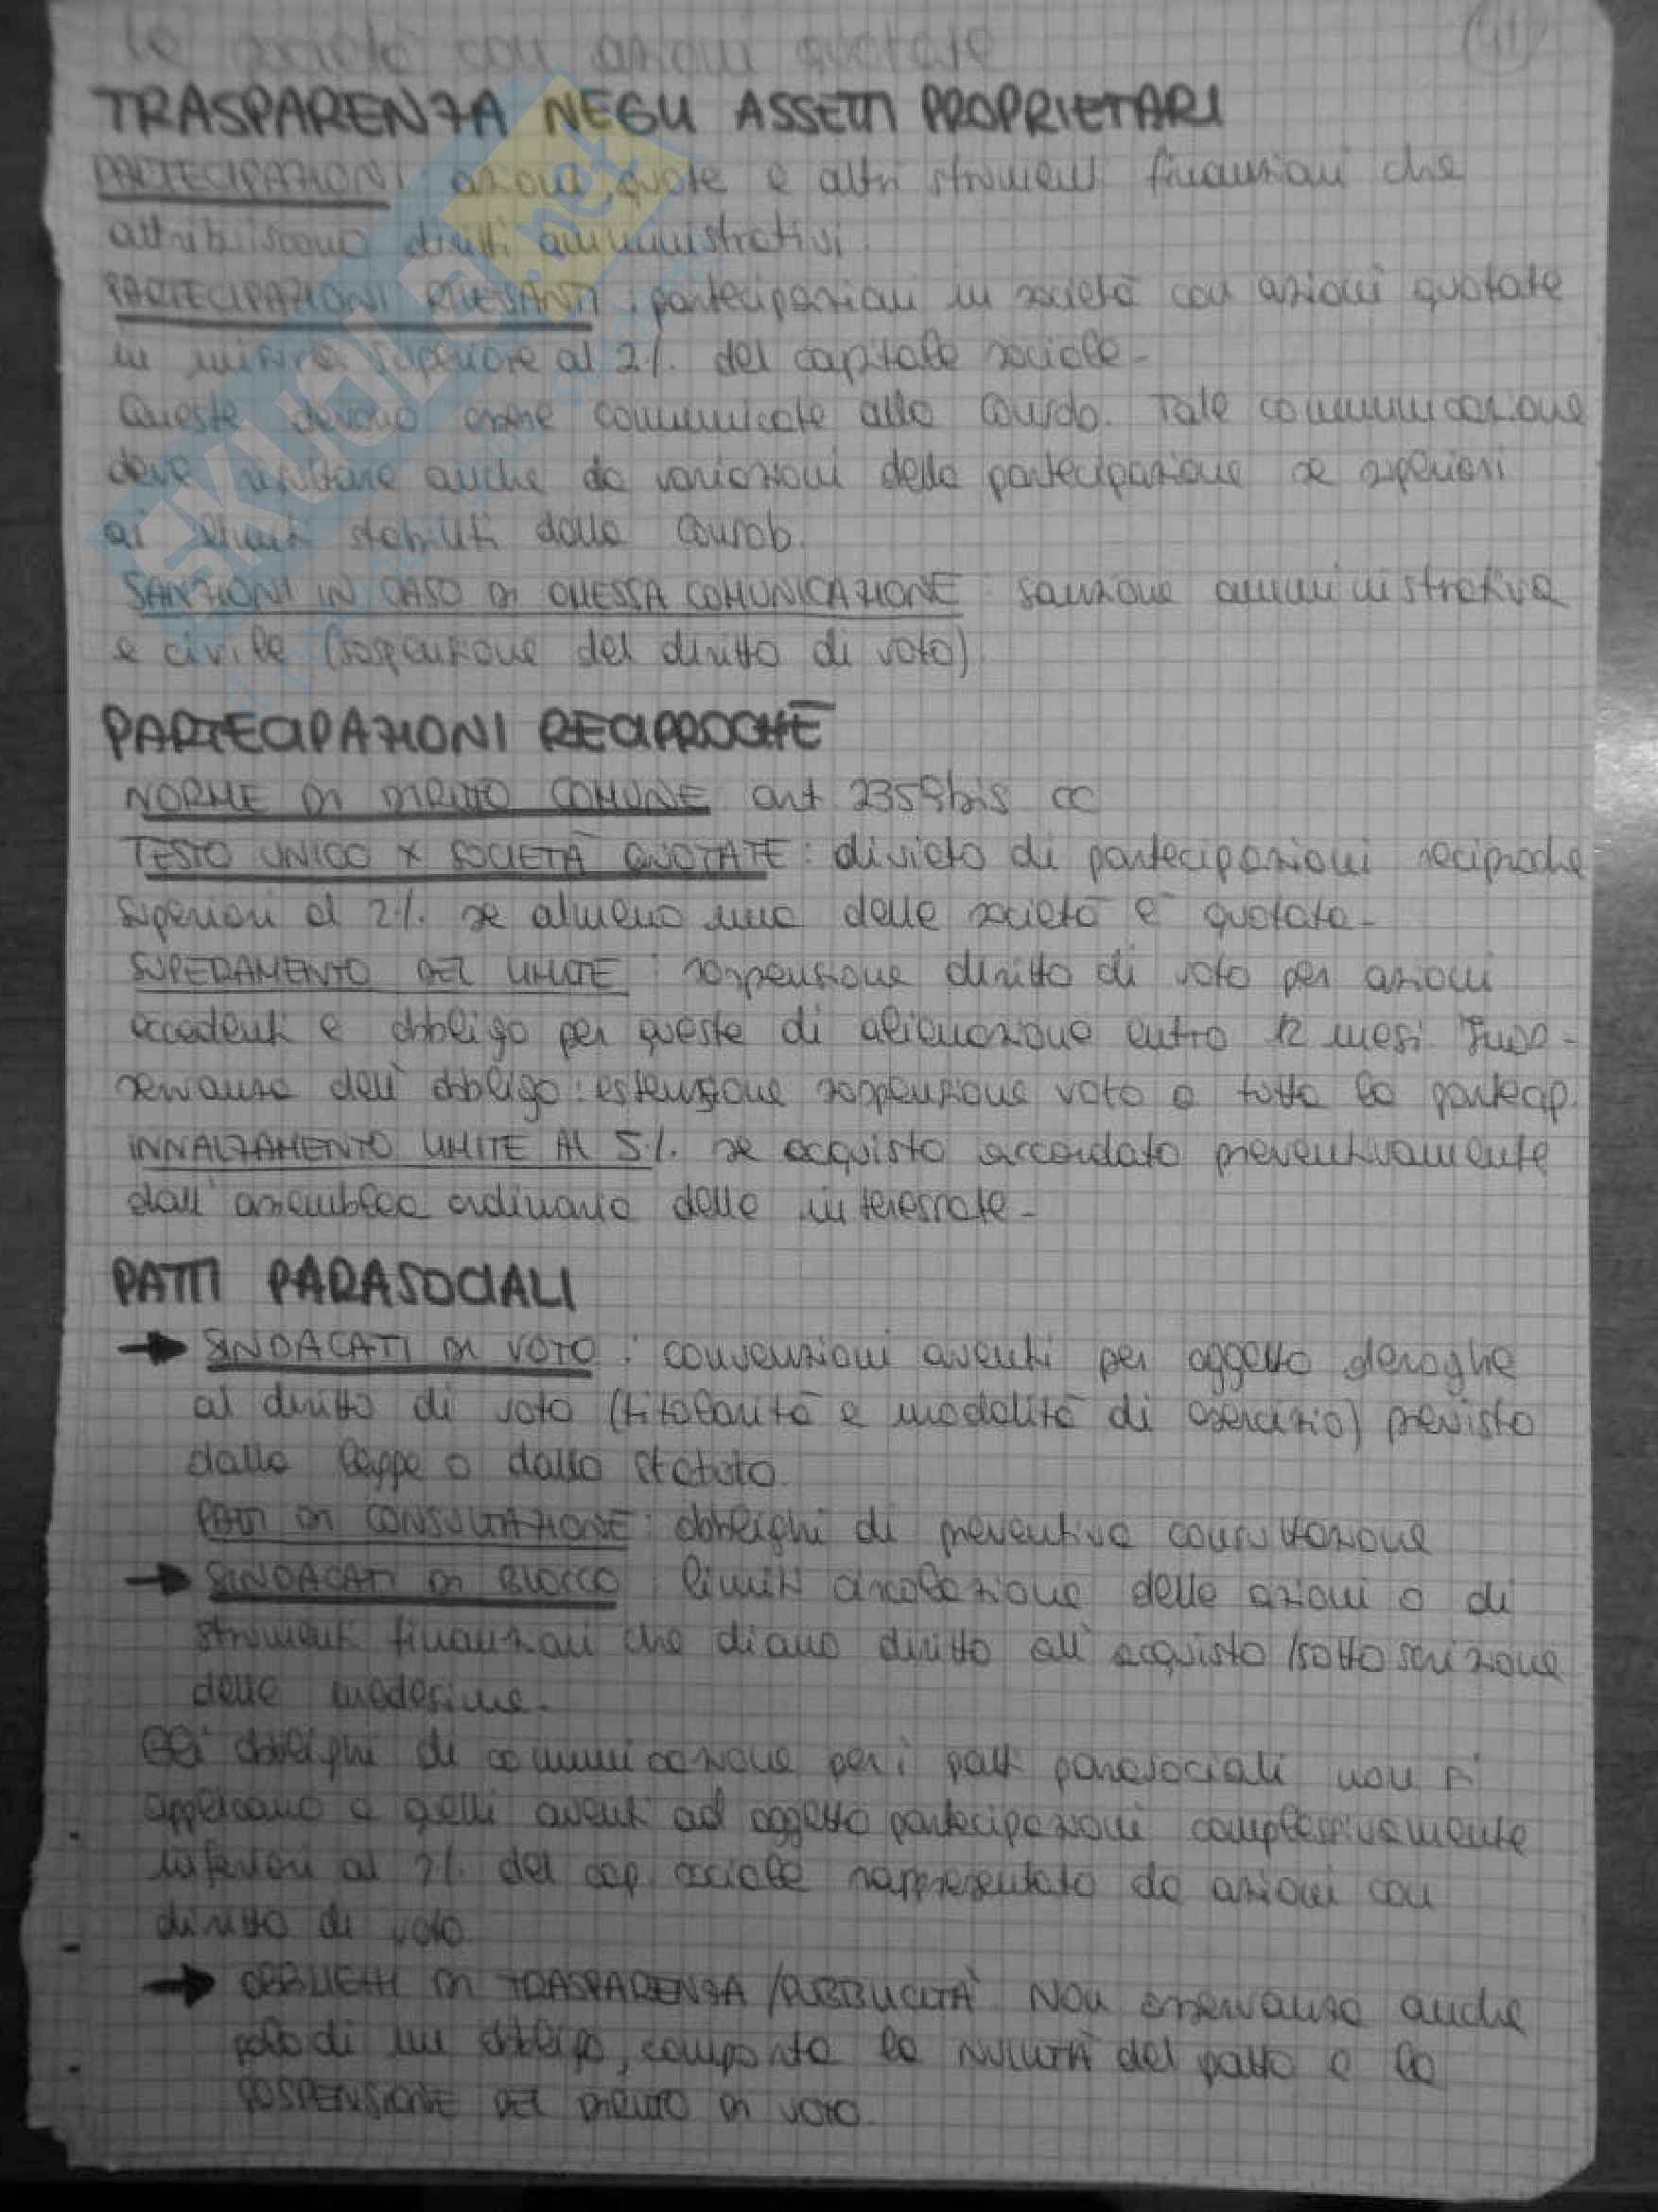 le società con azioni quotate
TRASPARENZA NEGLI ASSETTI PROPRIETARI
PARTECIPAZIONI azioni quote e altri strumenti finanziari che
attribuiscono diritti amministrativi.
PARTECIPAZIONI RILEVANTI: partecipazioni in società con azioni quotate
in misura superiore al 2%. del capitale sociale-
Queste devono essere comunicate alla Consob. Tale comunicazione
deve risultare anche da variazioni della partecipazione se superiori
ai limiti stabiliti dalla Consob.
SANZIONI IN CASO DI OMESSA COMUNICAZIONE: sanzione amministrativa
e civile (sospensione del diritto di voto)
PARTECIPAZIONI RECIPROCHE
NORME DI DIRITTO COMUNE art 2359bis cc
TESTO UNICO X SOCIETÀ QUOTATE: divieto di partecipazioni reciproche
superiori al 2%. se almeno una delle società è quotata-
SUPERAMENTO DEL LIMITE: sospensione diritto di voto per azioni
eccedenti e obbligo per queste di alienazione entro 12 mesi. Inos-
servanza dell'obbligo: estensione sospensione voto a tutta la partecip.
INNALZAMENTO LIMITE AL 5%. se acquisto accordato preventivamente
dall'assemblea ordinaria delle interessate-
PATTI PARASOCIALI
→ SINDACATI DI VOTO: convenzioni aventi per oggetto deroghe
al diritto di voto (titolarità e modalità di esercizio) previsto
dalla legge o dallo statuto.
PATTI DI CONSULTAZIONE: obblighi di preventiva consultazione
→ SINDACATI DI BLOCCO: limiti circolazione delle azioni o di
strumenti finanziari che diano diritto all'acquisto/sottoscrizione
delle medesime-
Gli obblighi di comunicazione per i patti parasociali non si
applicano a quelli aventi ad oggetto partecipazioni complessivamente
inferiori al 2%. del cap. sociale rappresentato da azioni con
diritto di voto
→ OBBLIGHI DI TRASPARENZA/PUBBLICITÀ Non osservanza anche
solo di un obbligo, comporta la NULLITÀ del patto e la
SOSPENSIONE DEL DIRITTO DI VOTO.
SKUOLA.net